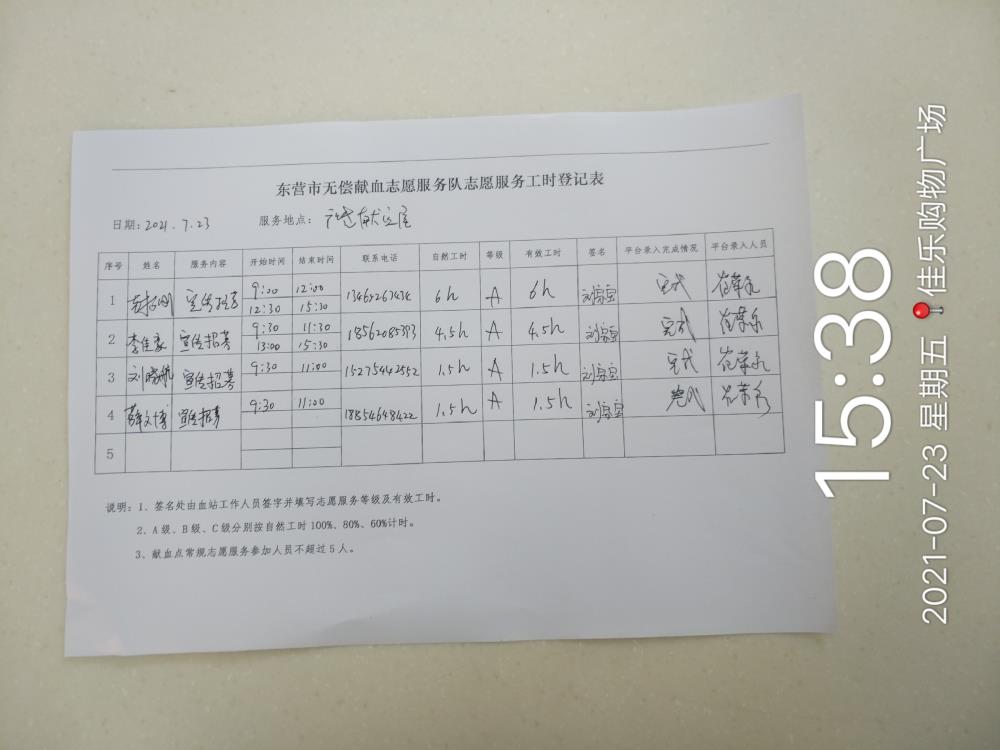 东营市无偿献血志愿服务队志愿服务工时登记表
日期：2021.7.23 服务地点：献血屋
序号 姓名 服务内容 开始时间 结束时间 联系电话 自然工时 等级 有效工时 签名 平台录入完成情况 平台录入人员
1 宣传招募 9:00 12:00 13467267434 6h A 6h 完成
12:30 15:30
2 李佳家 宣传招募 9:30 11:30 18562085393 4.5h A 4.5h 完成
13:00 15:30
3 刘晓航 宣传招募 9:30 11:00 15275442552 1.5h A 1.5h 完成
4 薛文博 宣传招募 9:30 11:00 18854648422 1.5h A 1.5h 完成
5
说明：1、签名处由血站工作人员签字并填写志愿服务等级及有效工时。
2、A级、B级、C级分别按自然工时100%、80%、60%计时。
3、献血点常规志愿服务参加人员不超过5人。
15:38
2021-07-23 星期五 佳乐购物广场